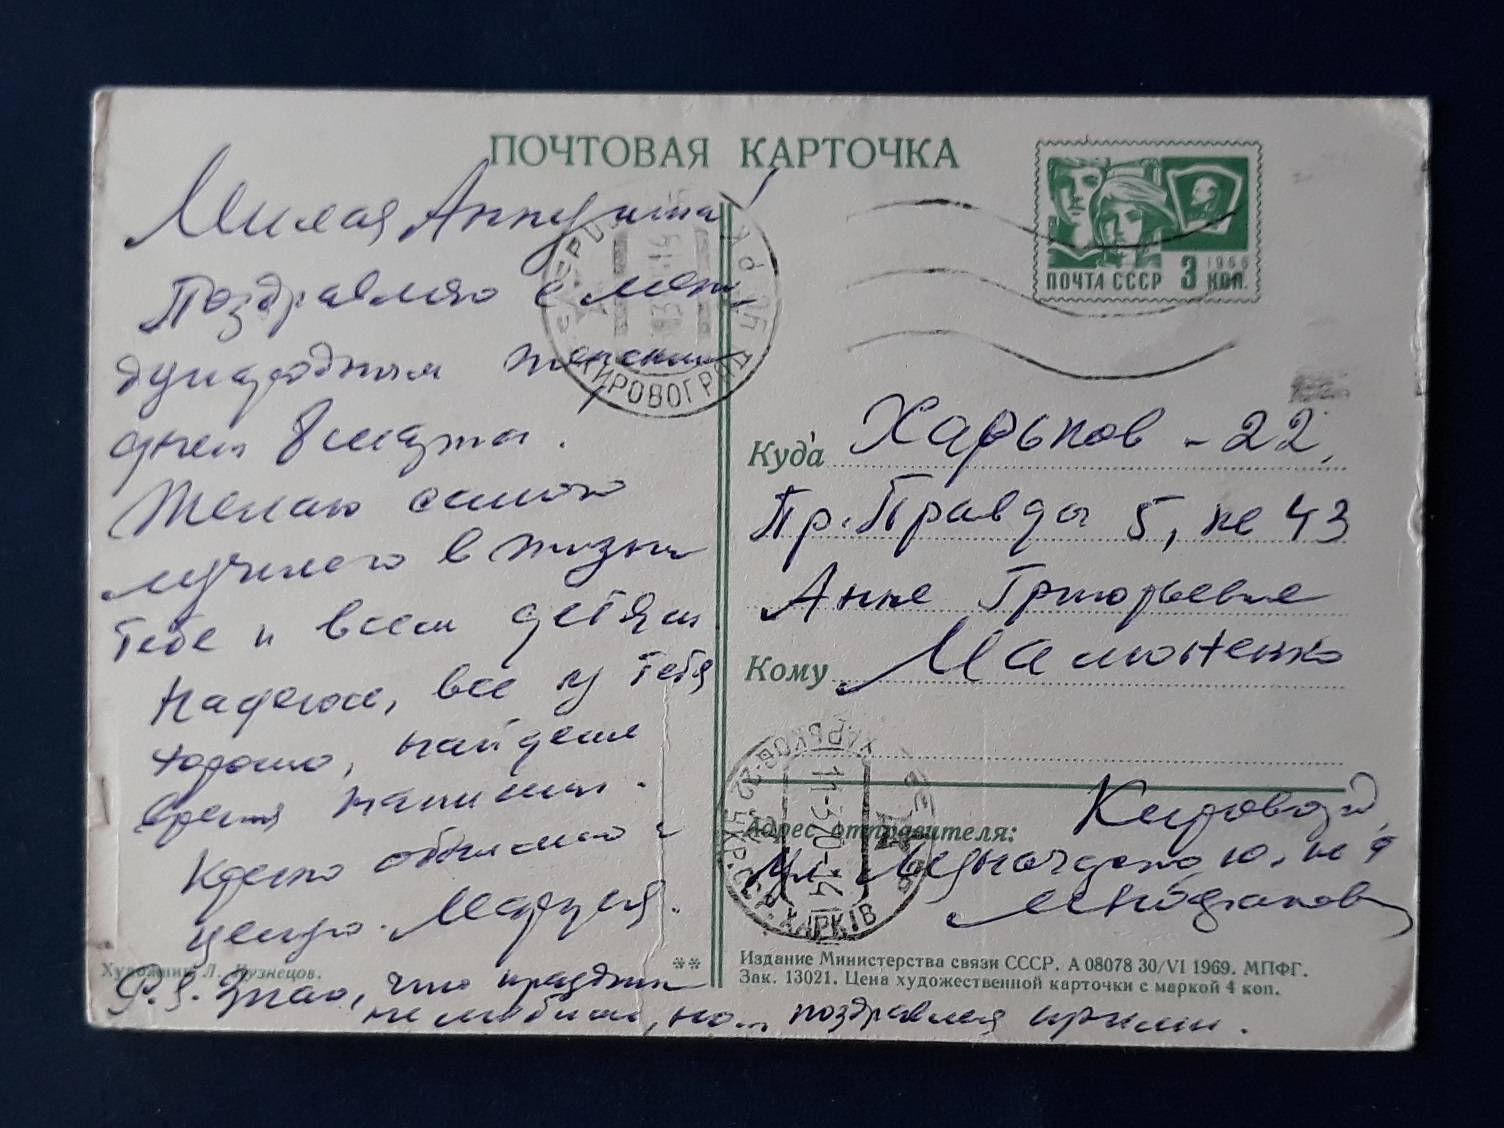 ПОЧТОВАЯ КАРТОЧКА
Милая Аннушка!
Поздравляю с меж-
дународным женским
днем 8 марта.
Желаю самого
лучшего в жизни
тебе и всем детям
Надеюсь, все у тебя
хорошо, найдешь
время напиши.
Крепко обнимаю и
целую. Маруся.
P.S. Знаю, что праздник
не любишь, но... поздравляя прими.
ПОЧТА СССР 3 КОП.
1966
КИРОВОГРАД
Куда Харьков - 22,
Пр. Правды 5, кв 43
Анне Григорьевне
Кому Мамоненко
ХАРЬКОВ-22 УКР.ССР. ХАРКІВ
11-370-14
Адрес отправителя: Кировоград,
ул.
Художник Л. Кузнецов.
**
Издание Министерства связи СССР. А 08078 30/VI 1969. МПФГ.
Зак. 13021. Цена художественной карточки с маркой 4 коп.